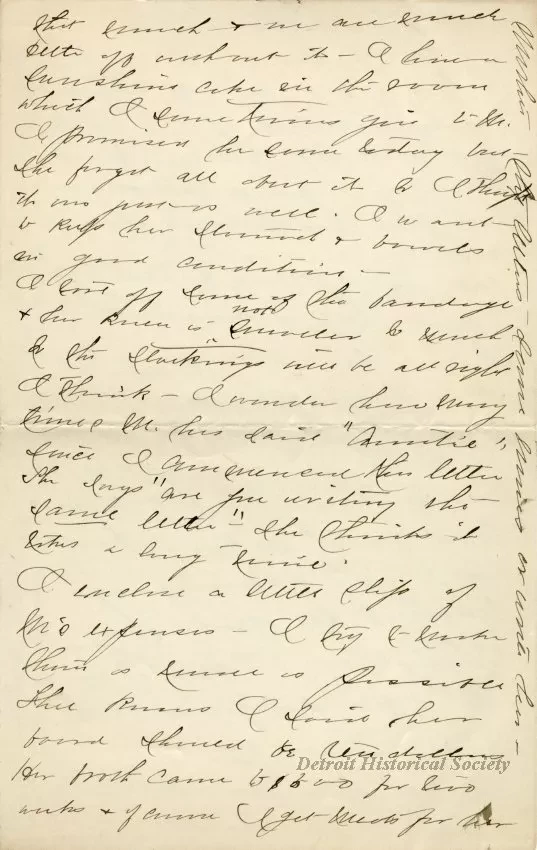 that much & we are much
better off without it – I have a
Sunshine cake in the room
which I sometimes give to M.
I promised her some today but
she forgot all about it & I think
it was just as well. I want
to keep her stomach & bowels
in good condition –
I tore off some of the bandage
& her knee is not smaller so much
so the "stockings" will be all right
I think – I wonder how many
times M. has said "Auntie",
since I commenced this letter
She says "are you writing the
same letter" – she thinks it
takes a long time.
I enclose a little slip of
M's expenses – I try to make
them as small as possible
She knows I said her
board should be ten dollars
Her broth came to for two
weeks & of course I get meats for her
letters – some or write her –
Detroit Historical Society